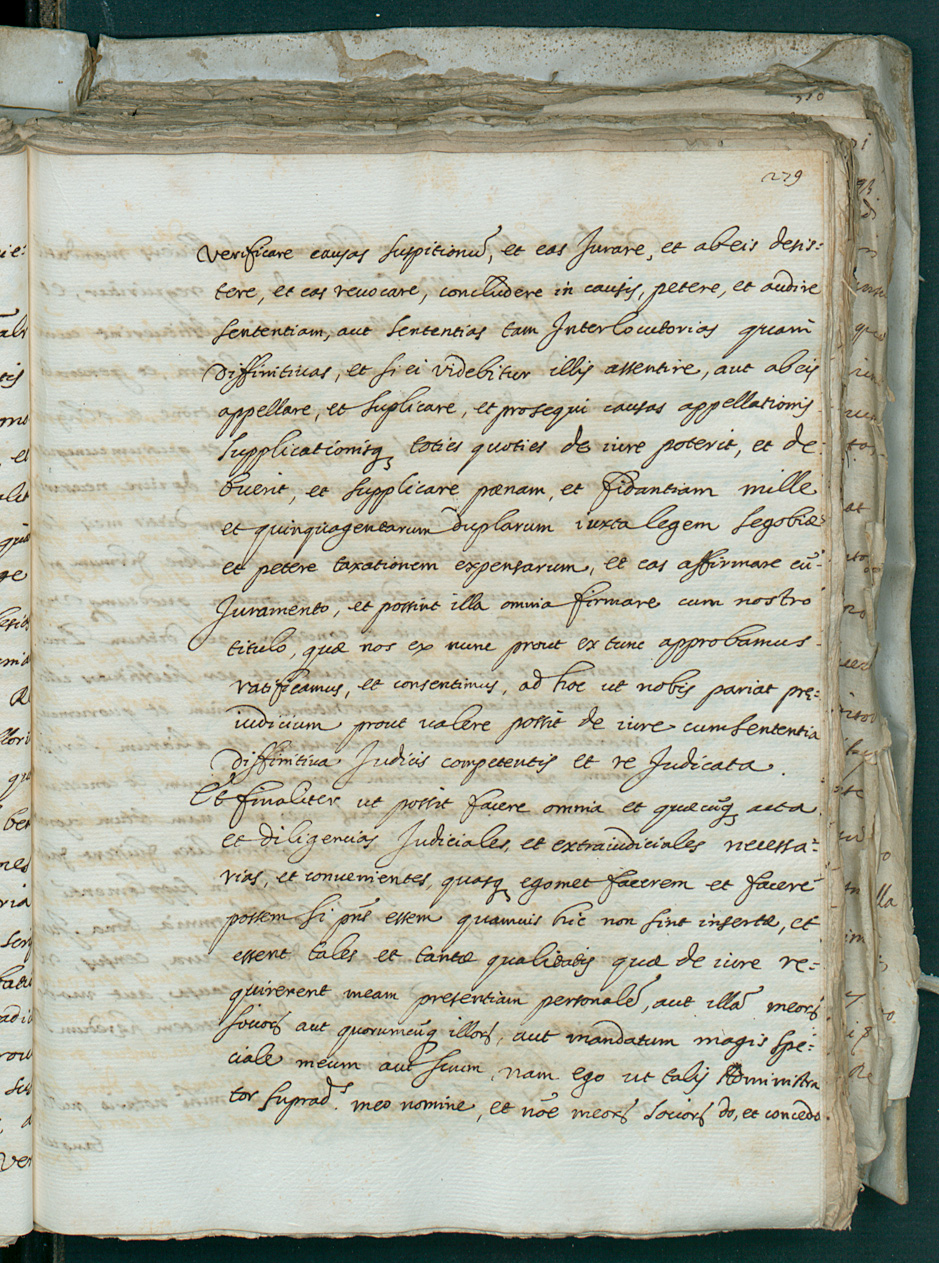 279
verificare causas suspitionũ, et eas Jurare, et ab eis desis:
tere, et eas revocare, concludere in causis, petere, et audire
sententiam, aut sententias tam Interlocutorias quam
Diffinitivas, et si ei videbitur illis assentire, aut ab eis
appellare, et suplicare, et prosequi causas appellationis
supplicationisq3 toties quoties de iure poterit, et de=
buerit, et supplicare pœnam, et fidantiam mille
et quinquagentarum duplarum iuxta legem segobiæ
et petere taxationem expensarum, et eas affirmare cũ
Juramento, et possint illa omnia firmare cum nostro
titulo, quæ nos ex nunc prout ex tunc approbamus
ratificamus, et consentimus, ad hoc ut nobis pariat pre:
iudicium prout valere possit de iure cum sententia
Diffinitiva Judicis competentis et re Judicata.
Et finaliter ut possit facere omnia et quæcũq3 acta
et diligencias Judiciales, et extraiudiciales necessa=
rias, et convenientes, quasq3 egomet facerem et facere
possem si pñs essem quamvis hic non sint insertæ, et
essent tales et tantæ qualitatis quæ de iure re=
quirerent meam presentiam personalẽ, aut illã meorṣ
sociorṣ aut quorumcũq3 illorṣ, aut mandatum magis spe=
ciale meum aut suum, nam ego ut talis Administra
tor suprad.s meo nomine, et nõe meorṣ sociorṣ do, et concedo